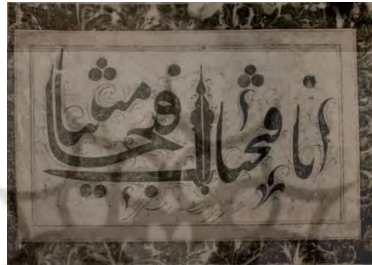 انا فتحنا لك فتحا مبينا